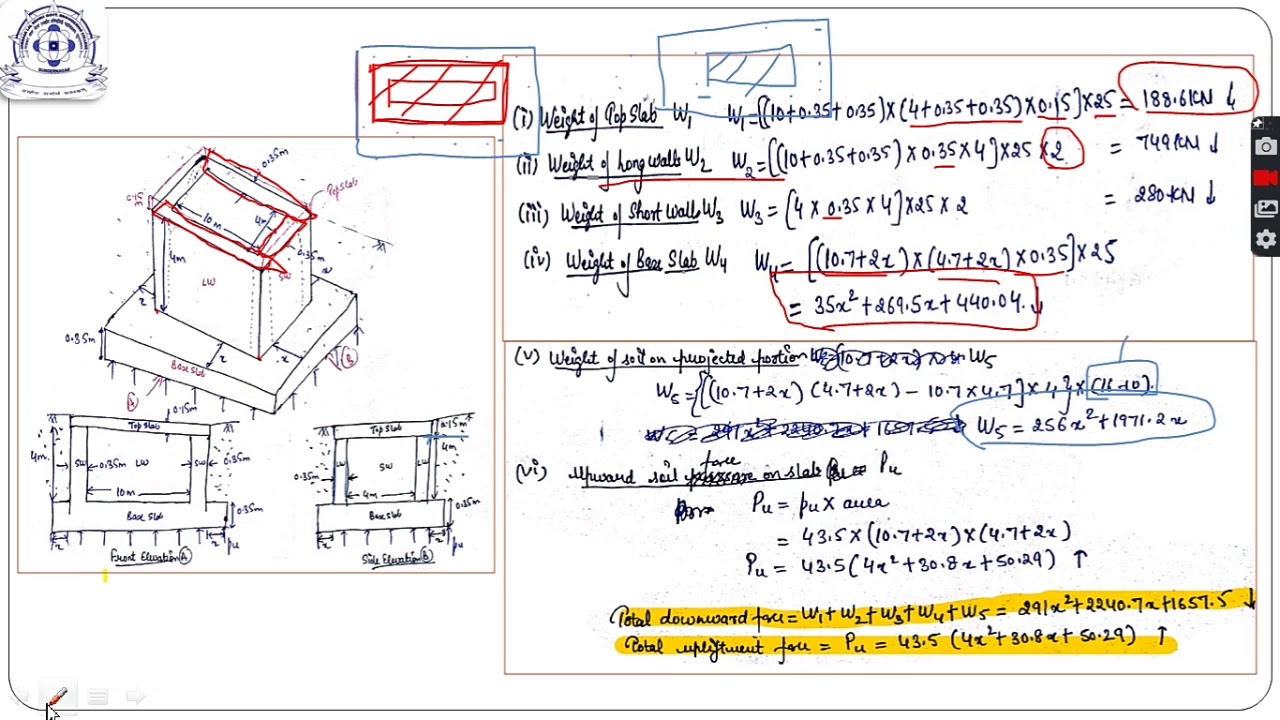 SUNDERNAGAR
(i) Weight of Top Slab W1 W1=[(10+0.35+0.35)×(4+0.35+0.35)×0.15]×25 = 188.6KN ↓
(ii) Weight of Long walls W2 W2=[(10+0.35+0.35)×0.35×4]×25×2 = 749KN ↓
(iii) Weight of Short Walls W3 W3=[4×0.35×4]×25×2 = 280KN ↓
(iv) Weight of Base Slab W4 W4=[(10.7+2x)×(4.7+2x)×0.35]×25
= 35x²+269.5x+440.04 ↓
(v) Weight of soil on projected portion W5
W5={[(10.7+2x)(4.7+2x) – 10.7×4.7]× }×(16-10)
W5=256x²+1971.2x
(vi) Upward soil force on slab Pu
Pu = pu×area
= 43.5×(10.7+2x)×(4.7+2x)
Pu = 43.5(4x²+30.8x+50.29) ↑
Total downward force=W1+W2+W3+W4+W5=291x²+2240.7x+1657.5 ↓
Total upliftment force = Pu = 43.5(4x²+30.8x+50.29) ↑
0.35m
Top slab
0.15m
10m
4m
0.35m
4m
LW
SW
x
x
x
x
0.35m
Base Slab
A
B
0.15m
Top Slab
4m
SW
0.35m
LW
SW
0.35m
10m
Base Slab
0.35m
x
x
pu
Front Elevation A
Top Slab
0.15m
4m
LW
SW
LW
0.35m
4m
Base Slab
0.35m
x
x
pu
Side Elevation B